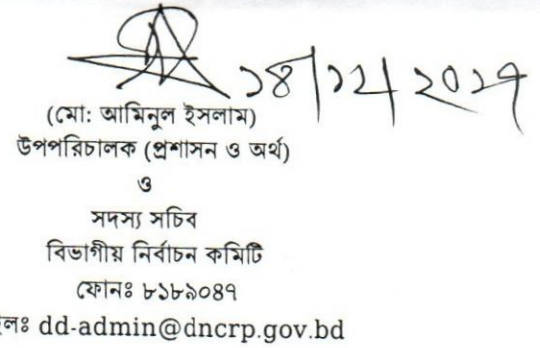 ১৪/১২/২০১৭
(মো: আমিনুল ইসলাম)
উপপরিচালক (প্রশাসন ও অর্থ)
ও
সদস্য সচিব
বিভাগীয় নির্বাচন কমিটি
ফোনঃ ৮১৮৯০৪৭
লঃ dd-admin@dncrp.gov.bd